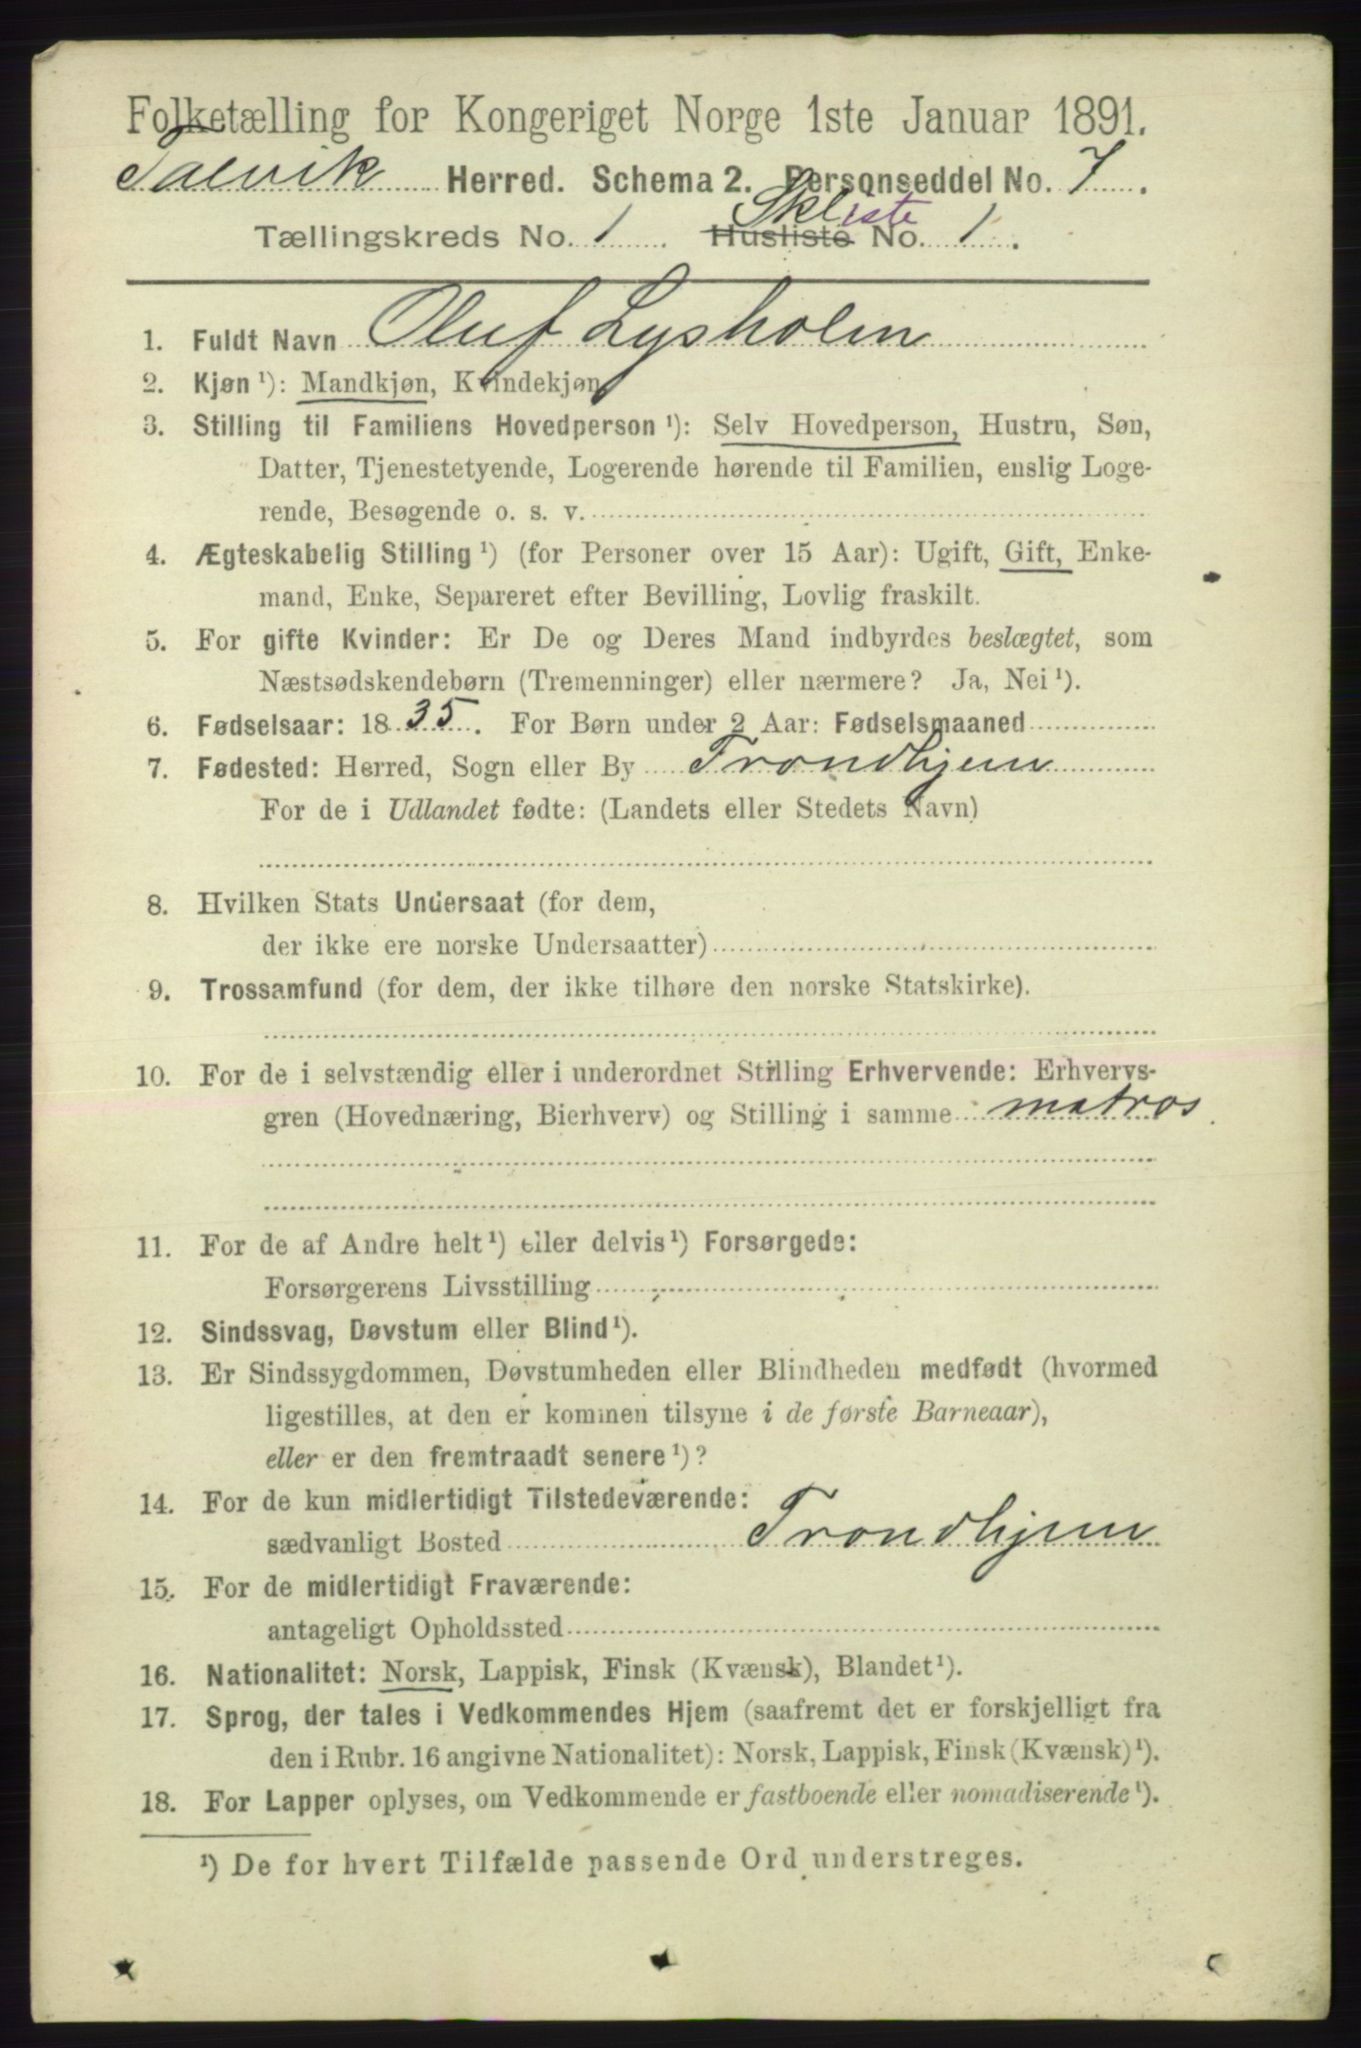 Folketælling for Kongeriget Norge 1ste Januar 1891.
Talvik Herred. Schema 2. Personseddel No. 7.
Skliste
Tællingskreds No. 1 Husliste No. 1.
1. Fuldt Navn Oluf Lysholm
2. Kjøn ¹): Mandkjøn, Kvindekjøn
3. Stilling til Familiens Hovedperson ¹): Selv Hovedperson, Hustru, Søn,
Datter, Tjenestetyende, Logerende hørende til Familien, enslig Loge-
rende, Besøgende o. s. v.
4. Ægteskabelig Stilling ¹) (for Personer over 15 Aar): Ugift, Gift, Enke-
mand, Enke, Separeret efter Bevilling, Lovlig fraskilt.
5. For gifte Kvinder: Er De og Deres Mand indbyrdes beslægtet, som
Næstsødskendebørn (Tremenninger) eller nærmere? Ja, Nei ¹).
6. Fødselsaar: 1835. For Børn under 2 Aar: Fødselsmaaned
7. Fødested: Herred, Sogn eller By Trondhjem
For de i Udlandet fødte: (Landets eller Stedets Navn)
8. Hvilken Stats Undersaat (for dem,
der ikke ere norske Undersaatter)
9. Trossamfund (for dem, der ikke tilhøre den norske Statskirke).
10. For de i selvstændig eller i underordnet Stilling Erhvervende: Erhvervs-
gren (Hovednæring, Bierhverv) og Stilling i samme matros
11. For de af Andre helt ¹) eller delvis ¹) Forsørgede:
Forsørgerens Livsstilling
12. Sindssvag, Døvstum eller Blind ¹).
13. Er Sindssygdommen, Døvstumheden eller Blindheden medfødt (hvormed
ligestilles, at den er kommen tilsyne i de første Barneaar),
eller er den fremtraadt senere ¹)?
14. For de kun midlertidigt Tilstedeværende:
sædvanligt Bosted Trondhjem
15. For de midlertidigt Fraværende:
antageligt Opholdssted
16. Nationalitet: Norsk, Lappisk, Finsk (Kvænsk), Blandet ¹).
17. Sprog, der tales i Vedkommendes Hjem (saafremt det er forskjelligt fra
den i Rubr. 16 angivne Nationalitet): Norsk, Lappisk, Finsk (Kvænsk) ¹).
18. For Lapper oplyses, om Vedkommende er fastboende eller nomadiserende ¹).
¹) De for hvert Tilfælde passende Ord understreges.